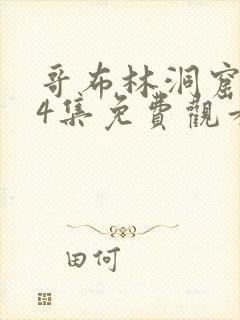 哥布林洞窟
4集免費觀
田何